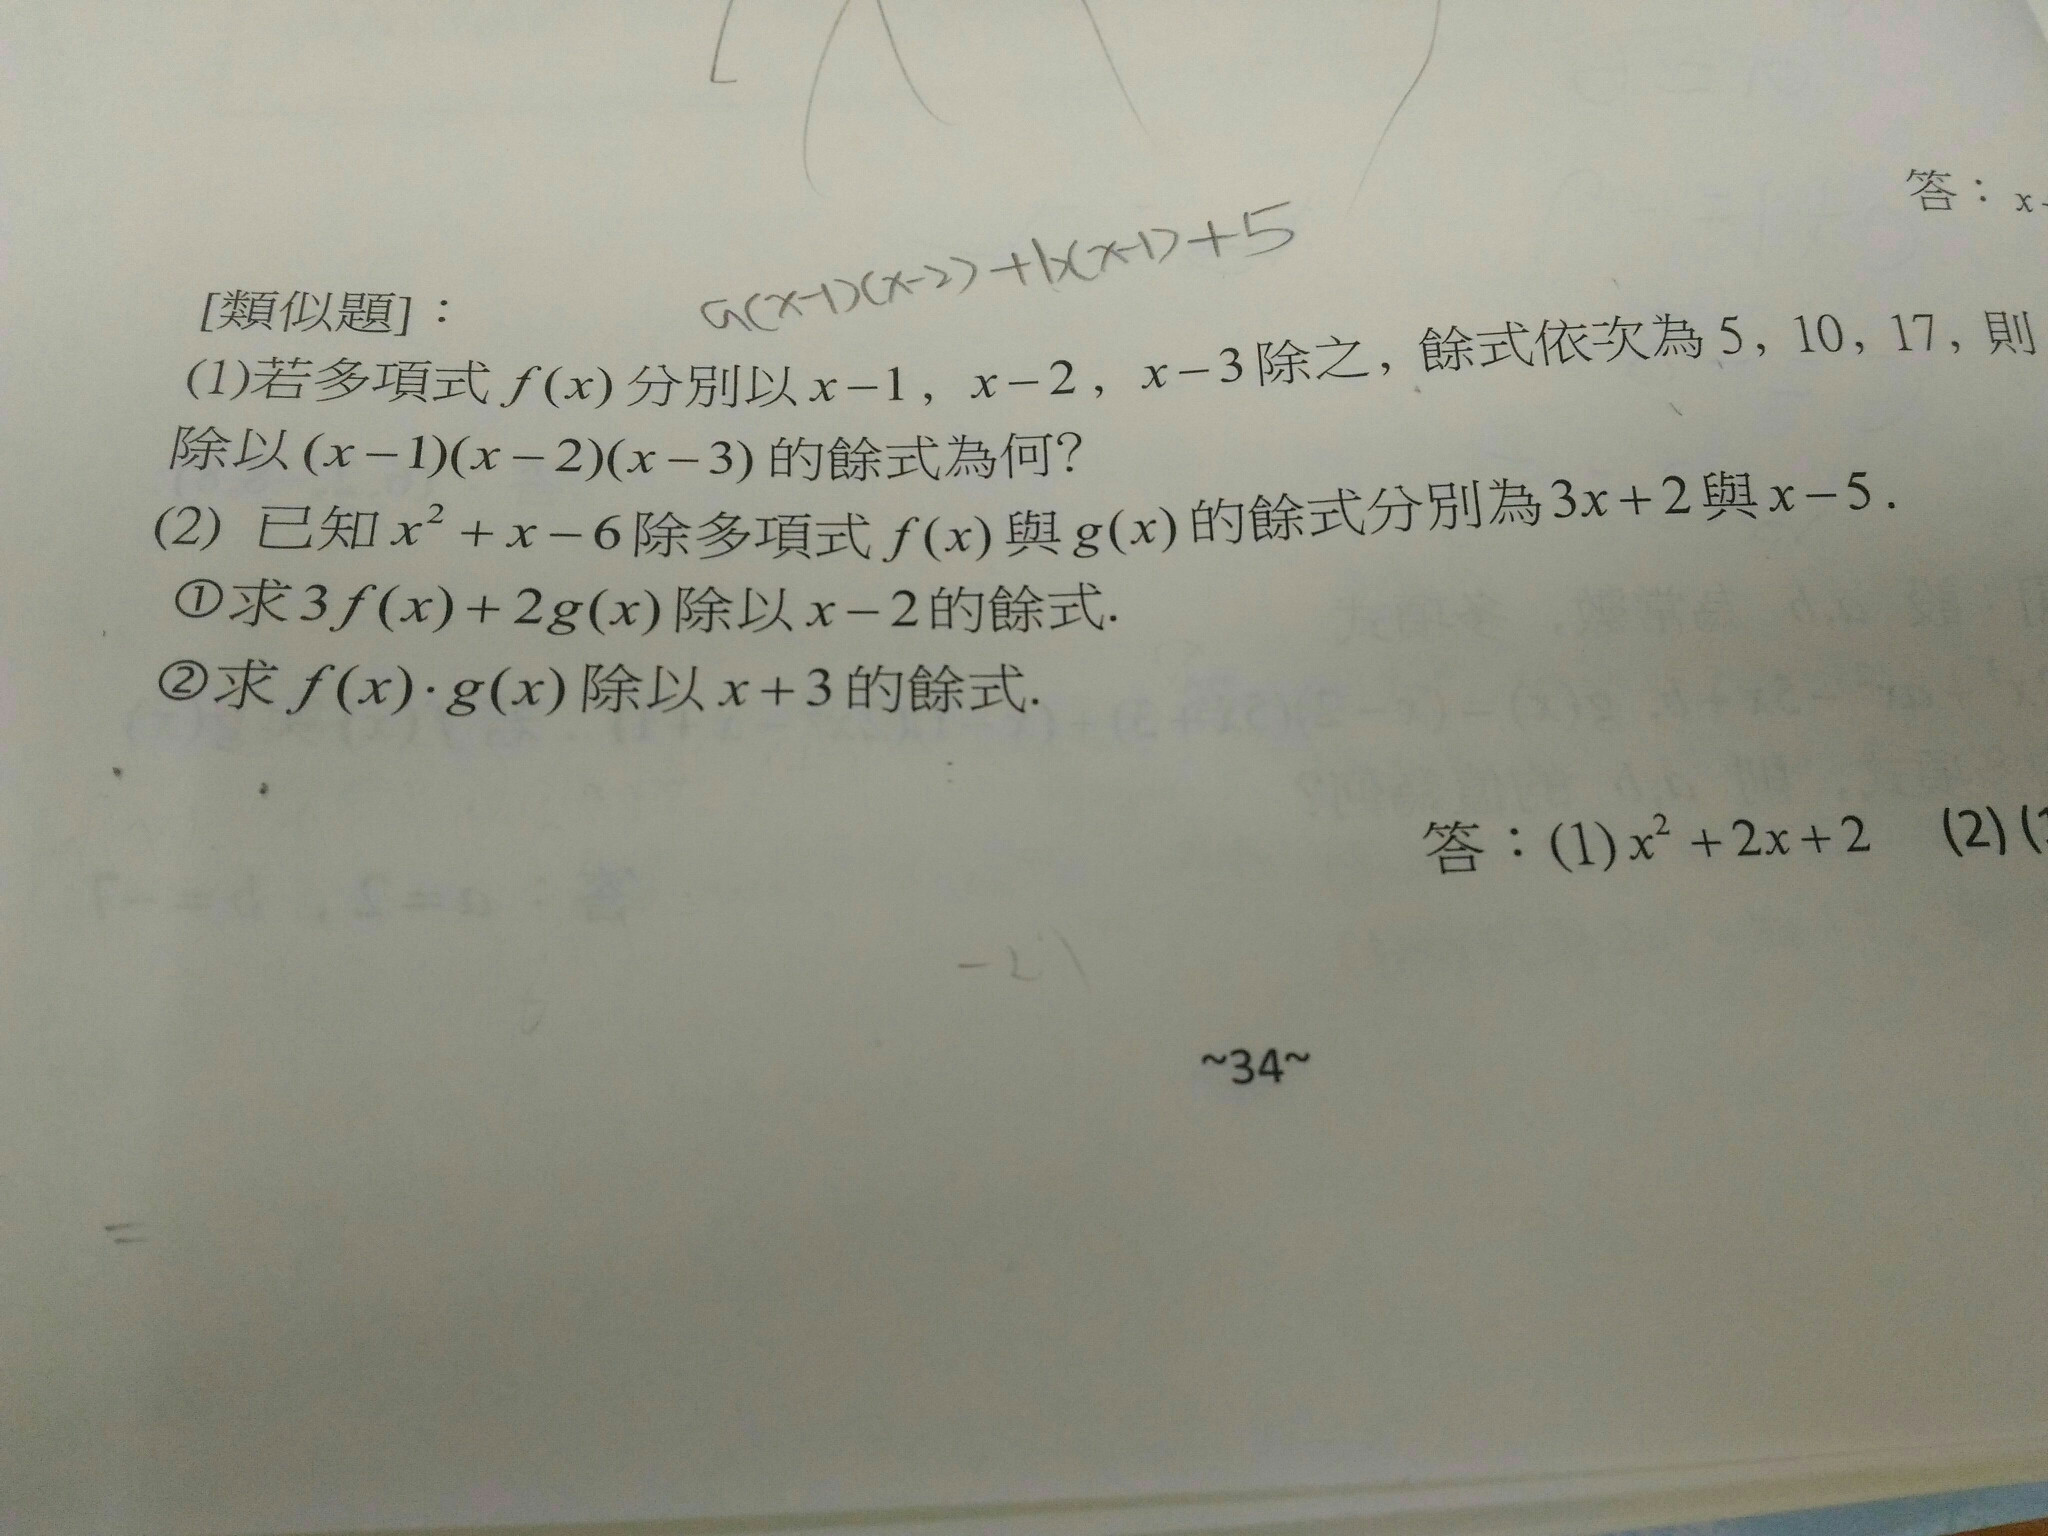 答：x
a(x-1)(x-2)+b(x-1)+5
[類似題]：
(1)若多項式 f(x) 分別以 x-1, x-2, x-3 除之, 餘式依次為 5, 10, 17, 則
除以 (x-1)(x-2)(x-3) 的餘式為何?
(2) 已知 x²+x-6 除多項式 f(x) 與 g(x) 的餘式分別為 3x+2 與 x-5.
①求 3f(x)+2g(x) 除以 x-2 的餘式.
②求 f(x)·g(x) 除以 x+3 的餘式.
答：(1) x²+2x+2 (2) (
~34~
=